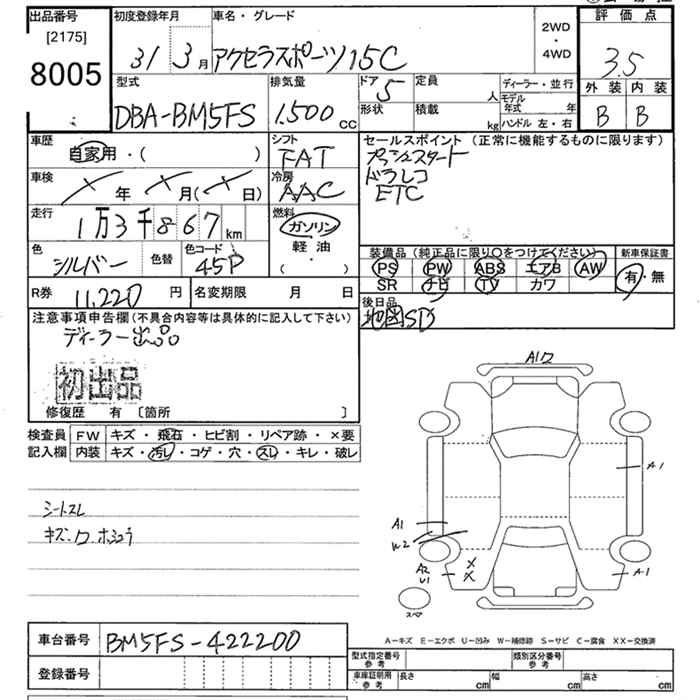 出品番号
[2175]
8005
初度登録年月
31 3月
車名・グレード
アクセラスポーツ 15C
2WD
・
4WD
評価点
3.5
外装 内装
B B
型式
DBA-BM5FS
排気量
1.500cc
ドア 5
定員 人
形状
積載 kg
ディーラー・並行
モデル年式 年
ハンドル 左・右
車歴
自家用・( )
シフト
FAT
車検
年 月( 日)
冷房
AAC
走行
1万3千867km
燃料
ガソリン
軽油
( ・ )
色
シルバー
色替
色コード
45P
セールスポイント(正常に機能するものに限ります)
プッシュスタート
ドラレコ
ETC
装備品(純正品に限り○をつけてください)
PS PW ABS エアB AW
SR ナビ TV カワ
新車保証書
有・無
R券 11,220円
名変期限 月 日
後日品
地図SD
注意事項申告欄(不具合内容等は具体的に記入して下さい)
ディーラー出品
初出品
修復歴 有 〔箇所 〕
検査員 FW キズ・飛石・ヒビ割・リペア跡・×要
記入欄 内装 キズ・汚レ・コゲ・穴・スレ・キレ・破レ
シートスレ
キズ、ワ ホシュウ
A1ワ
A1
A1
W2
A2
U1
×
×
A1
スペア
車台番号 BM5FS-422200
登録番号
A-キズ E-エクボ U-凹み W-補修跡 S-サビ C-腐食 XX-交換済
型式指定番号
参考
類別区分番号
参考
車庫証明用
参考
長さ cm
幅 cm
高さ cm